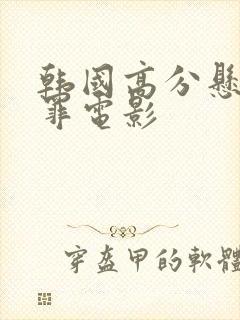 韩國高分懸
罪電影
穿盔甲的軟體